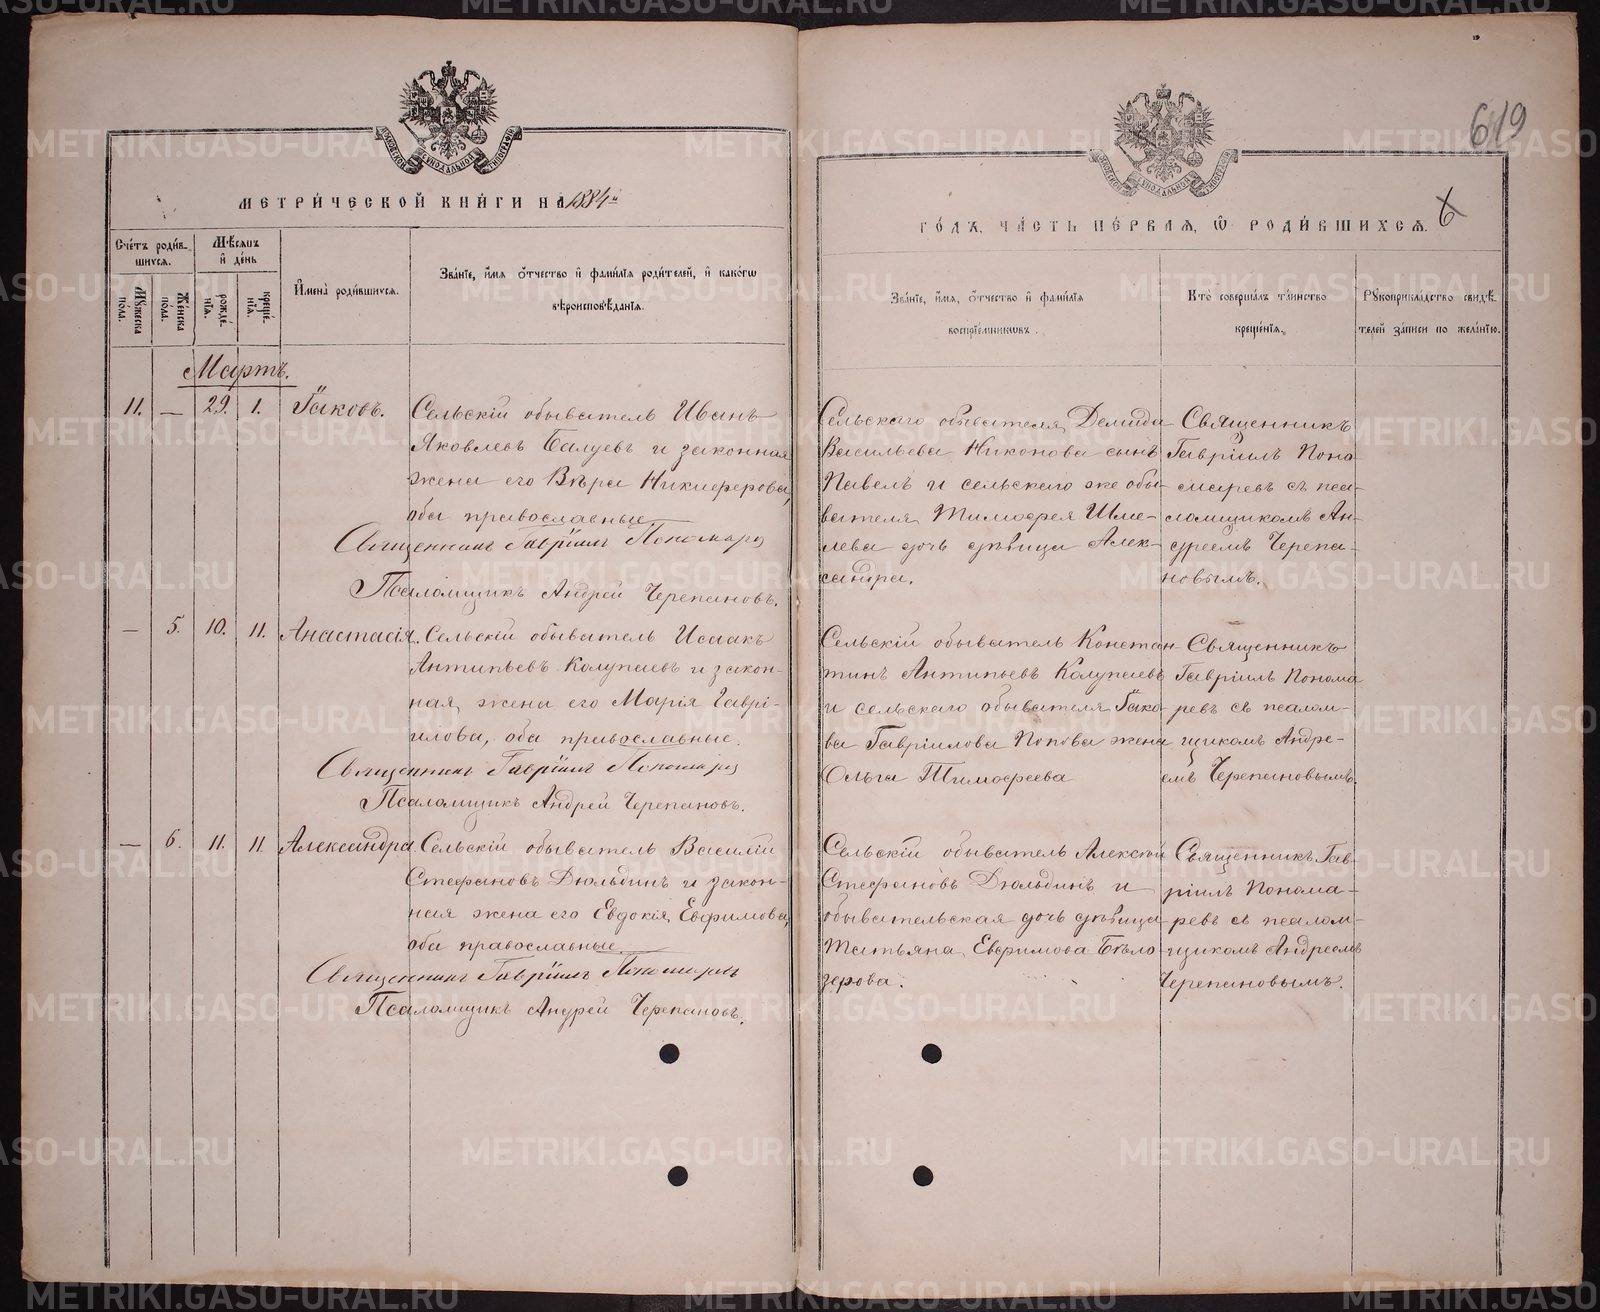 649
МЕТРИЧЕСКОЙ КНИГИ НА 1884й
ГОДЪ, ЧАСТЬ ПЕРВАЯ, Ѡ РОДИВШИХСЯ. 6
Счетъ родившихся.
Мужеска пола.
Женска пола.
Мѣсяцъ и день
рожденія.
крещенія.
Имена родившихся.
Званіе, имя отчество и фамилія родителей, и какогѡ
вѣроисповѣданія.
Званіе, имя, отчество и фамилія
воспріемниковъ.
Кто совершалъ таинство
крещенія.
Рукоприкладство свидѣ-
телей записи по желанію.
Мартъ.
11. — 29. 1. Іаковъ.
Сельскій обыватель Иванъ
Яковлевъ Балуевъ и законная
жена его Вѣра Никиферова,
оба православные.
Священникъ Гавріилъ Пономарев
Псаломщикъ Андрей Черепановъ.
Сельскаго обывателя Демида
Васильева Никонова сынъ
Павелъ и сельскаго же обы-
вателя Тимофея Шме-
лева дочь дѣвица Алек-
сандра.
Священникъ
Гавріилъ Поно-
маревъ съ пса-
ломщикомъ Ан-
дреемъ Черепа-
новымъ.
— 5. 10. 11. Анастасія.
Сельскій обыватель Исаакъ
Антипьевъ Колупаевъ и закон-
ная жена его Марія Гаврі-
илова, оба православные.
Священникъ Гавріилъ Пономарев
Псаломщикъ Андрей Черепановъ.
Сельскій обыватель Констан-
тинъ Антипьевъ Колупаевъ
и сельскаго обывателя Іако-
ва Гавріилова Попова жена
Ольга Тимофеева
Священникъ
Гавріилъ Понома
ревъ съ псалом-
щикомъ Андре-
емъ Черепановымъ.
— 6. 11. 11. Александра.
Сельскій обыватель Василій
Стефановъ Дюльдинъ и закон-
ная жена его Евдокія Евфимова,
оба православные
Священникъ Гавріилъ Пономаревъ
Псаломщикъ Андрей Черепановъ.
Сельскій обыватель Алексѣй
Стефановъ Дюльдинъ и
обывательская дочь дѣвица
Татьяна Евфимова Бѣло-
зерова.
Священникъ Гав-
ріилъ Понома-
ревъ съ псалом-
щикомъ Андреемъ
Черепановымъ.
METRIKI.GASO-URAL.RU